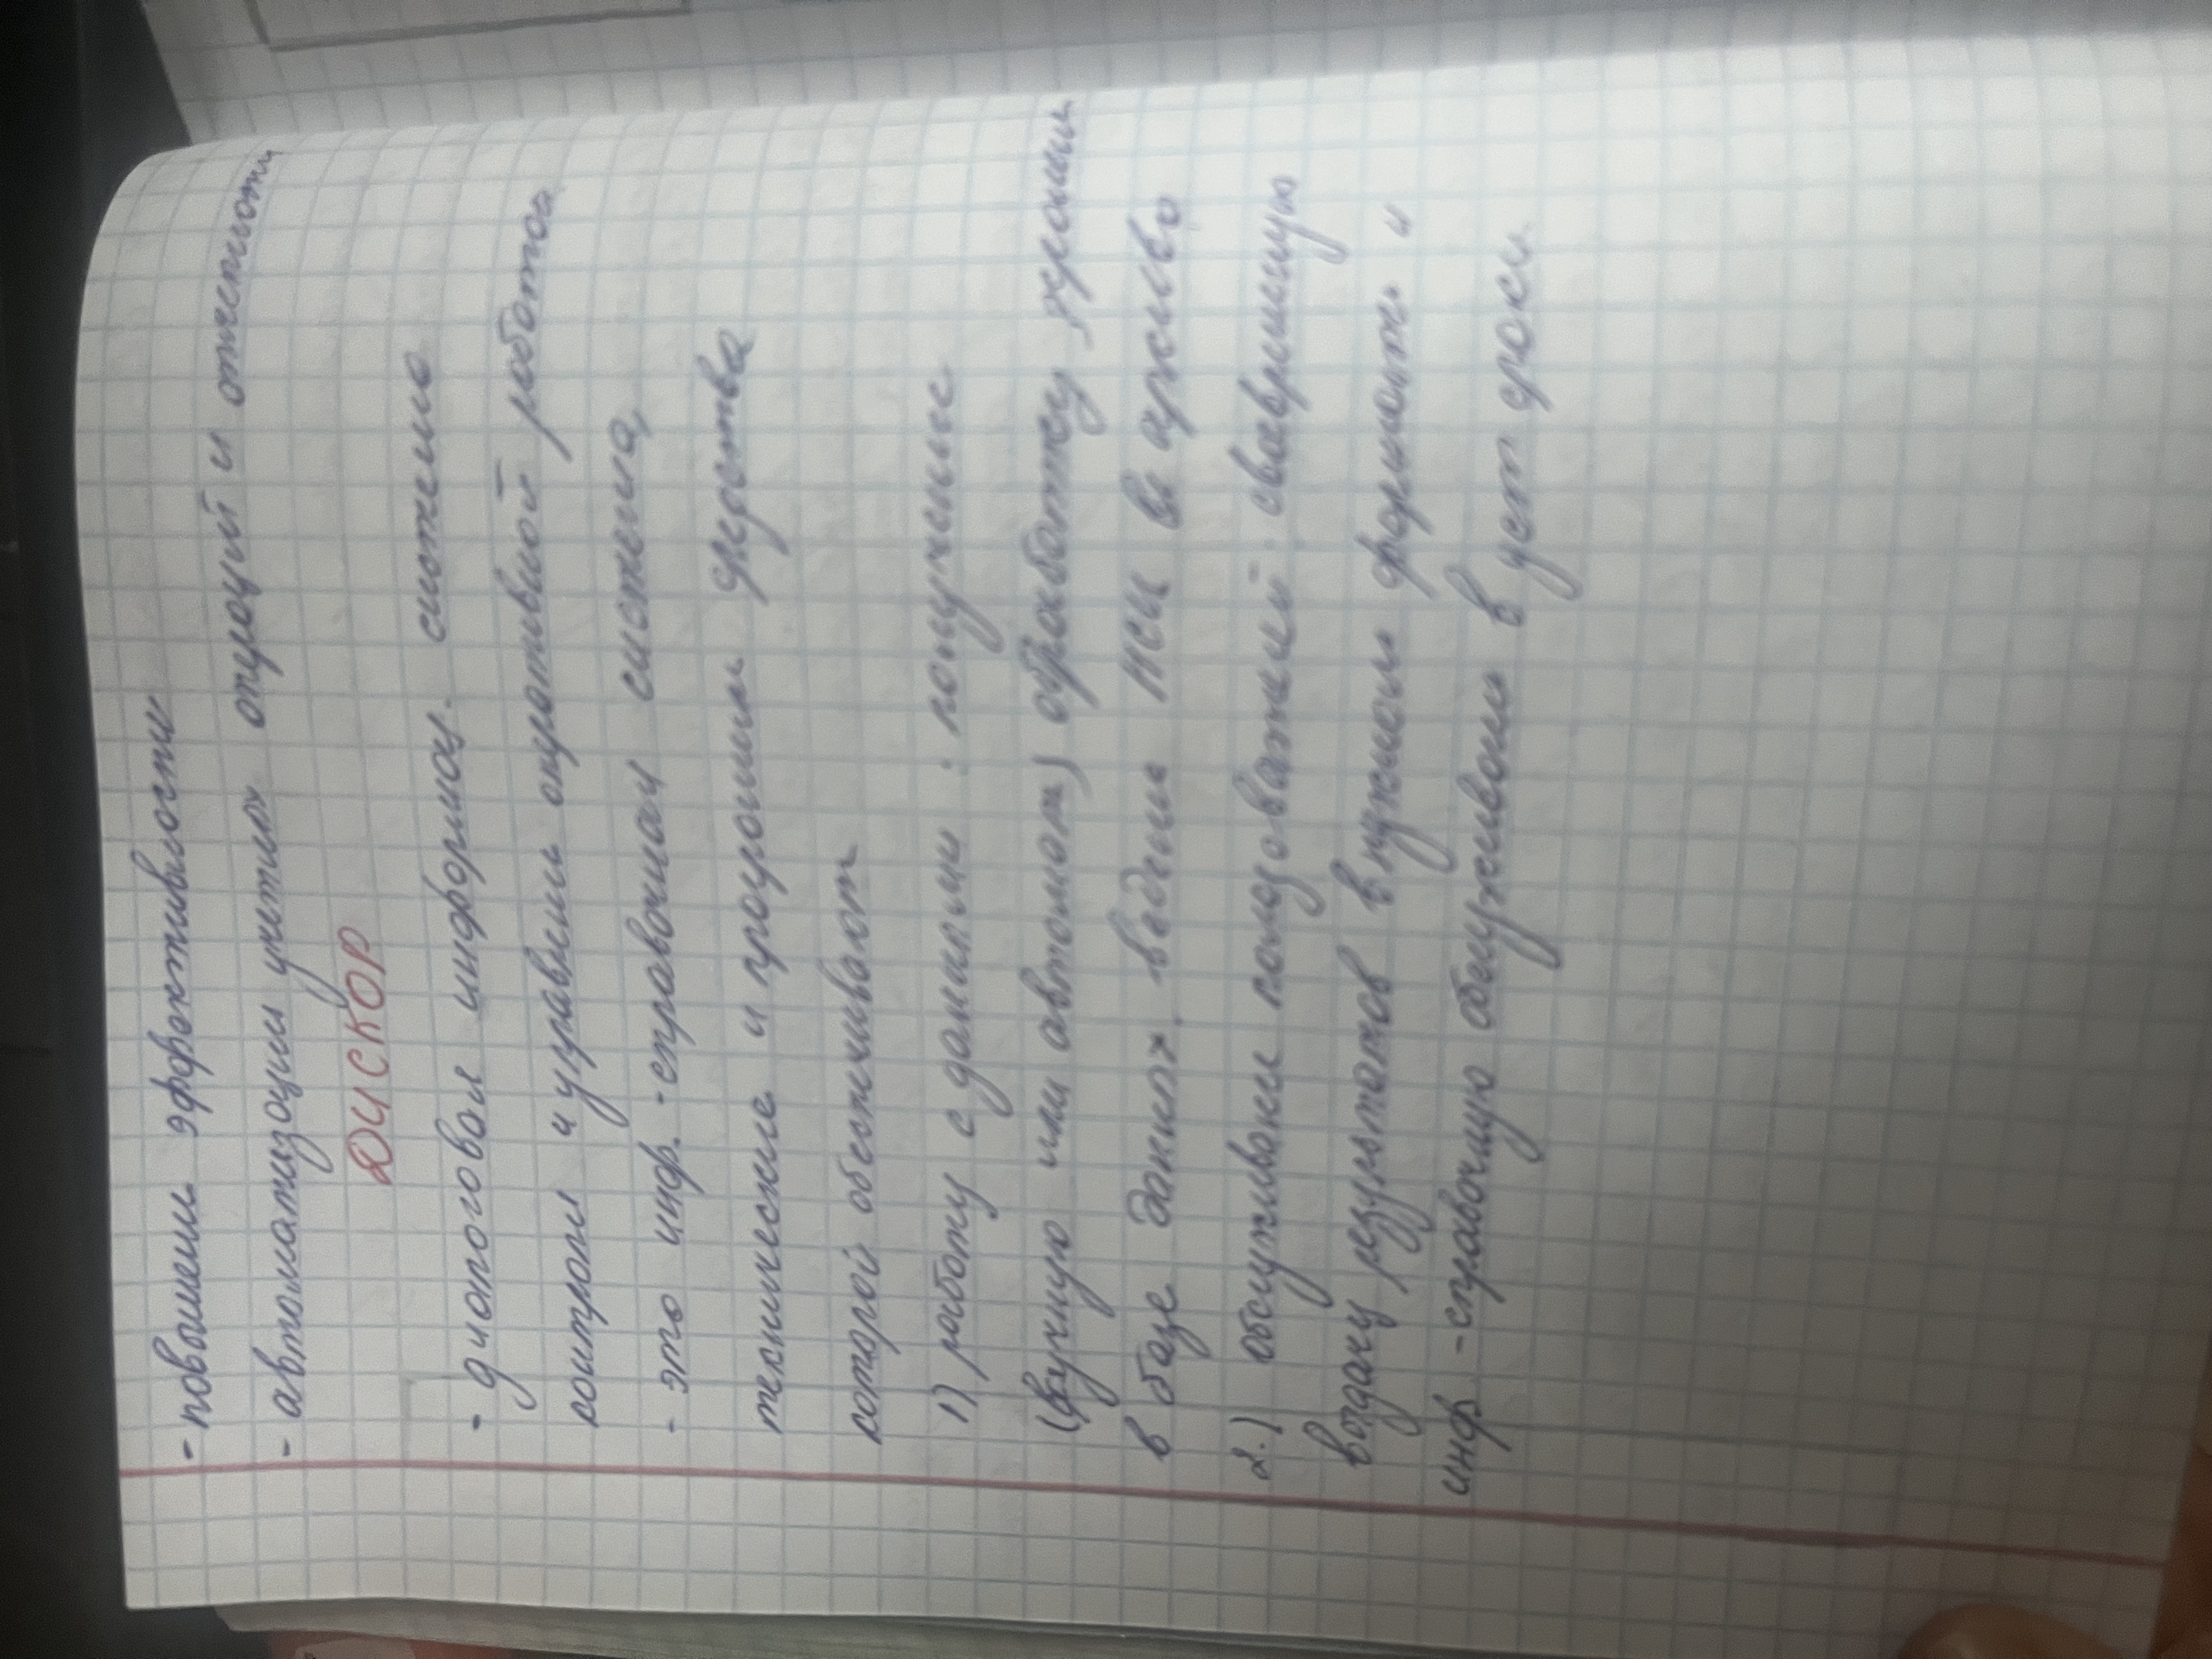 - повышени эффективности
- автоматизации учетных операций и отчетности
ДИСКОР
- диалоговая информац. система
контроля и управлени оперативной работой
- это инф.-справочная система,
технические и програмни средства
которой обеспечивают
1) работу с данными: получение
(вручную или автомат) обработку, хранени
в базе данных. ведени НСИ в архиве,
2.) обслуживани пользователей: своеврменную
выдачу результатов в нужном формате и
инф-справочную обслуживани в уст сроки.